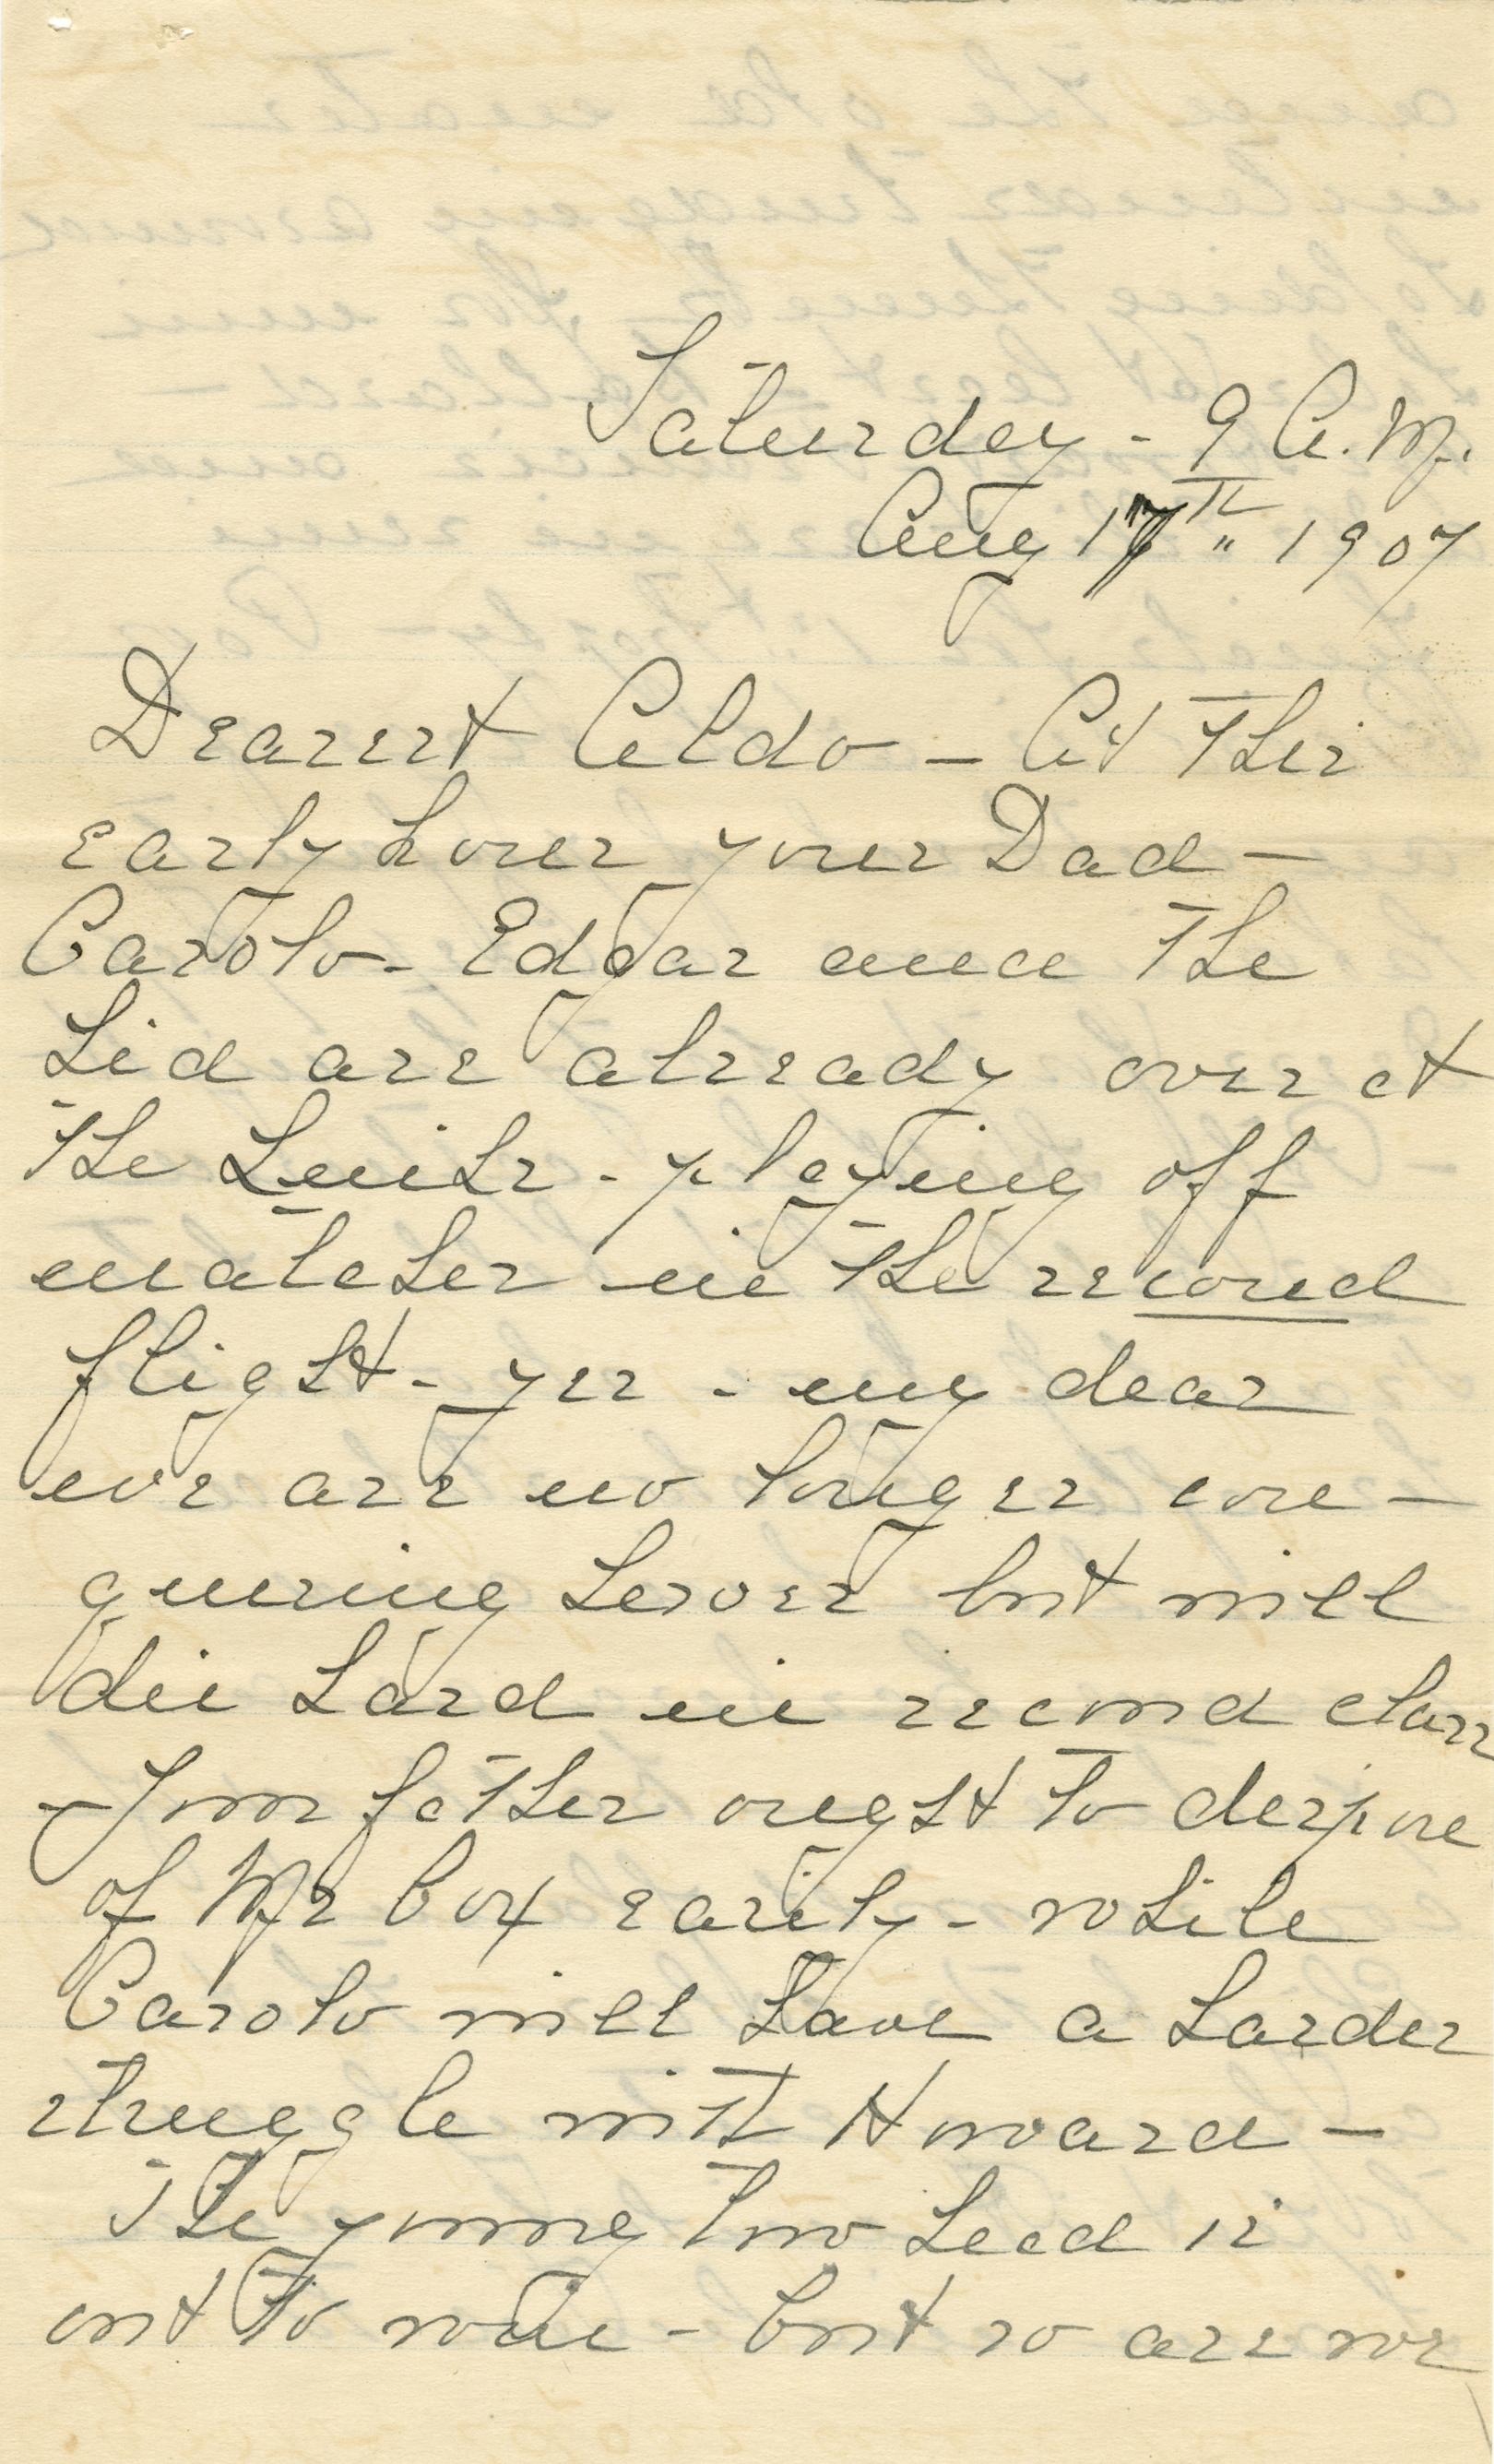 Saturday - 9 A.M.
Aug 17th " 1907
Dearest Aldo - At this
early hour your Dad -
Carolo - Edgar and the
kid are already over at
the Links - playing off
matches in the second
flight - yes - my dear
we are no longer con-
quering heroes but will
die hard in second class
- Your father ought to dispose
of Mr Cox easily - while
Carolo will have a harder
struggle with Howard -
The young two head is
out to win - but so are we